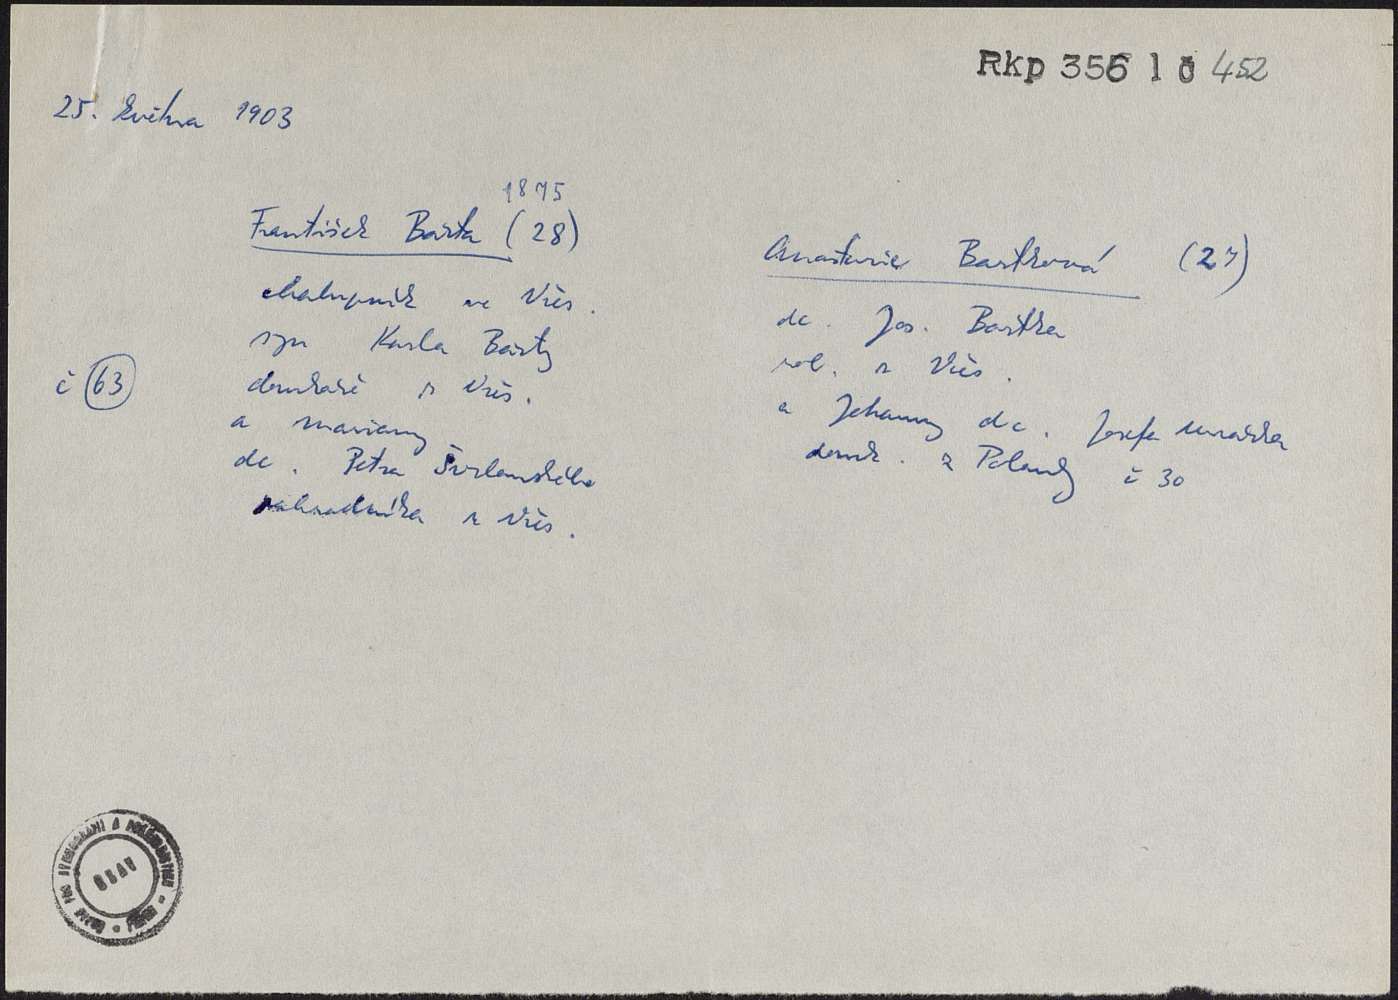 Rkp 356 10 452
25. května 1903
1875
František Bárta (28)
chalupník ve Vřes.
syn Karla Bárty
č 63
domkaře z Vřes.
a Mariany
dc. Petra Švrlanského
zahradníka z Vřes.
Anastasie Bartková (27)
dc. Jos. Bartka
rol. z Vřes.
a Johanny dc. Josefa
domk. z Polanky č 30